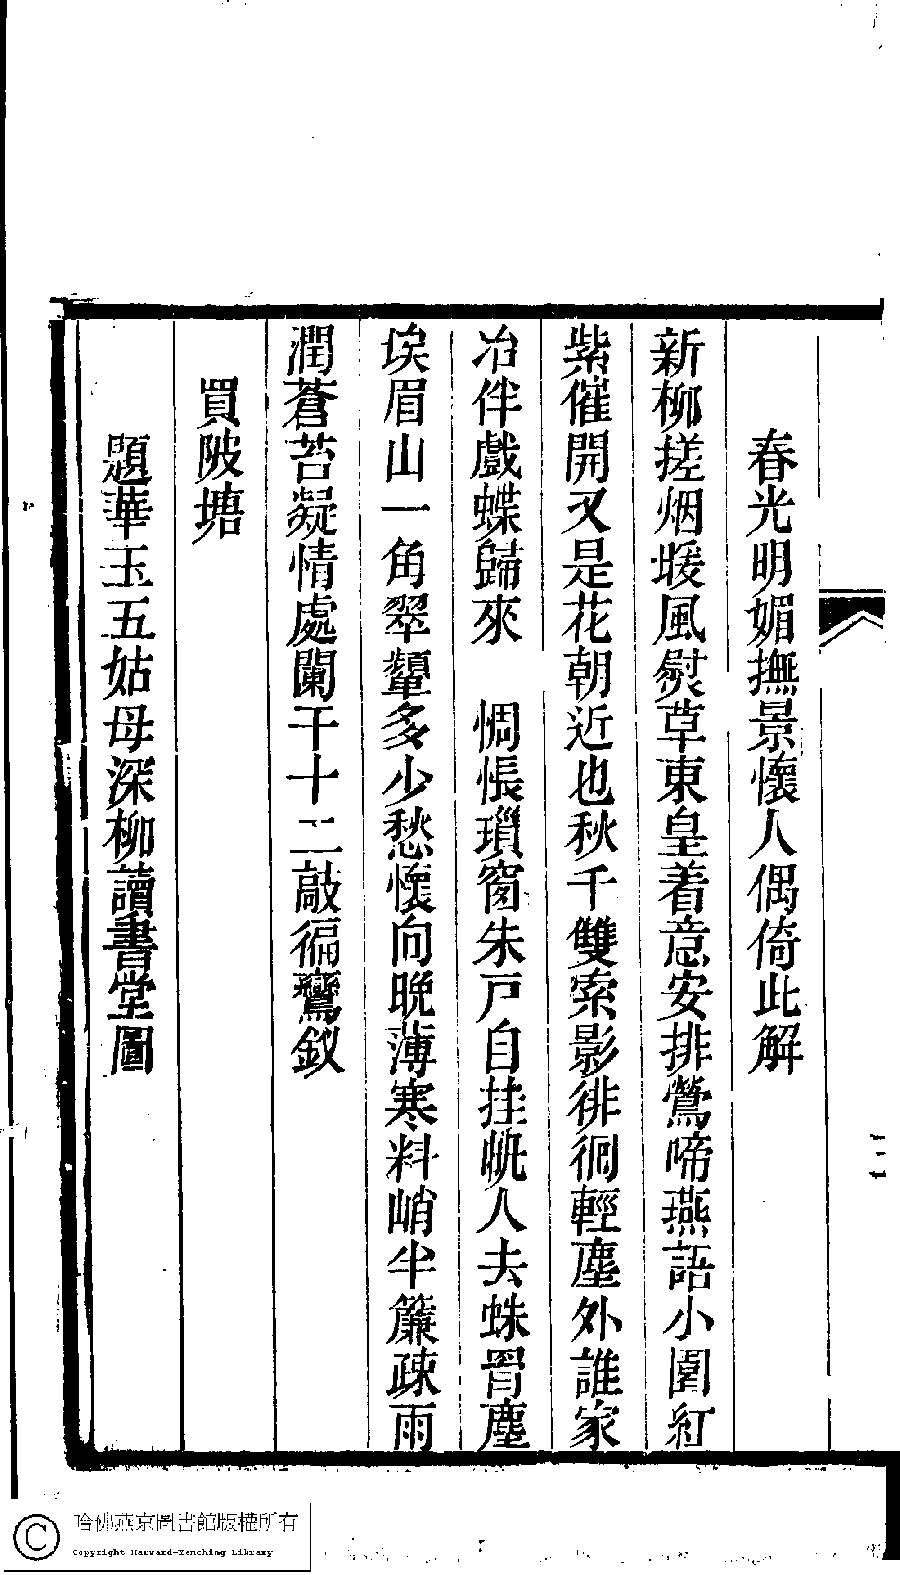 春光明媚撫景懷人偶倚此解
新柳搓烟暖風熨草東皇着意安排鶯啼燕語小園紅
紫催開又是花朝近也秋千雙索影徘徊輕塵外誰家
冶伴戲蝶歸來　惆悵瑣窗朱戸自挂帆人去蛛罥塵
埃眉山一角翠顰多少愁懷向晚薄寒料峭半簾疎雨
潤蒼苔凝情處闌干十二敲徧鸞釵
買陂塘
題華玉五姑母深柳讀書堂圖
二
哈佛燕京圖書館版權所有
Copyright Harvard-Yenching Library